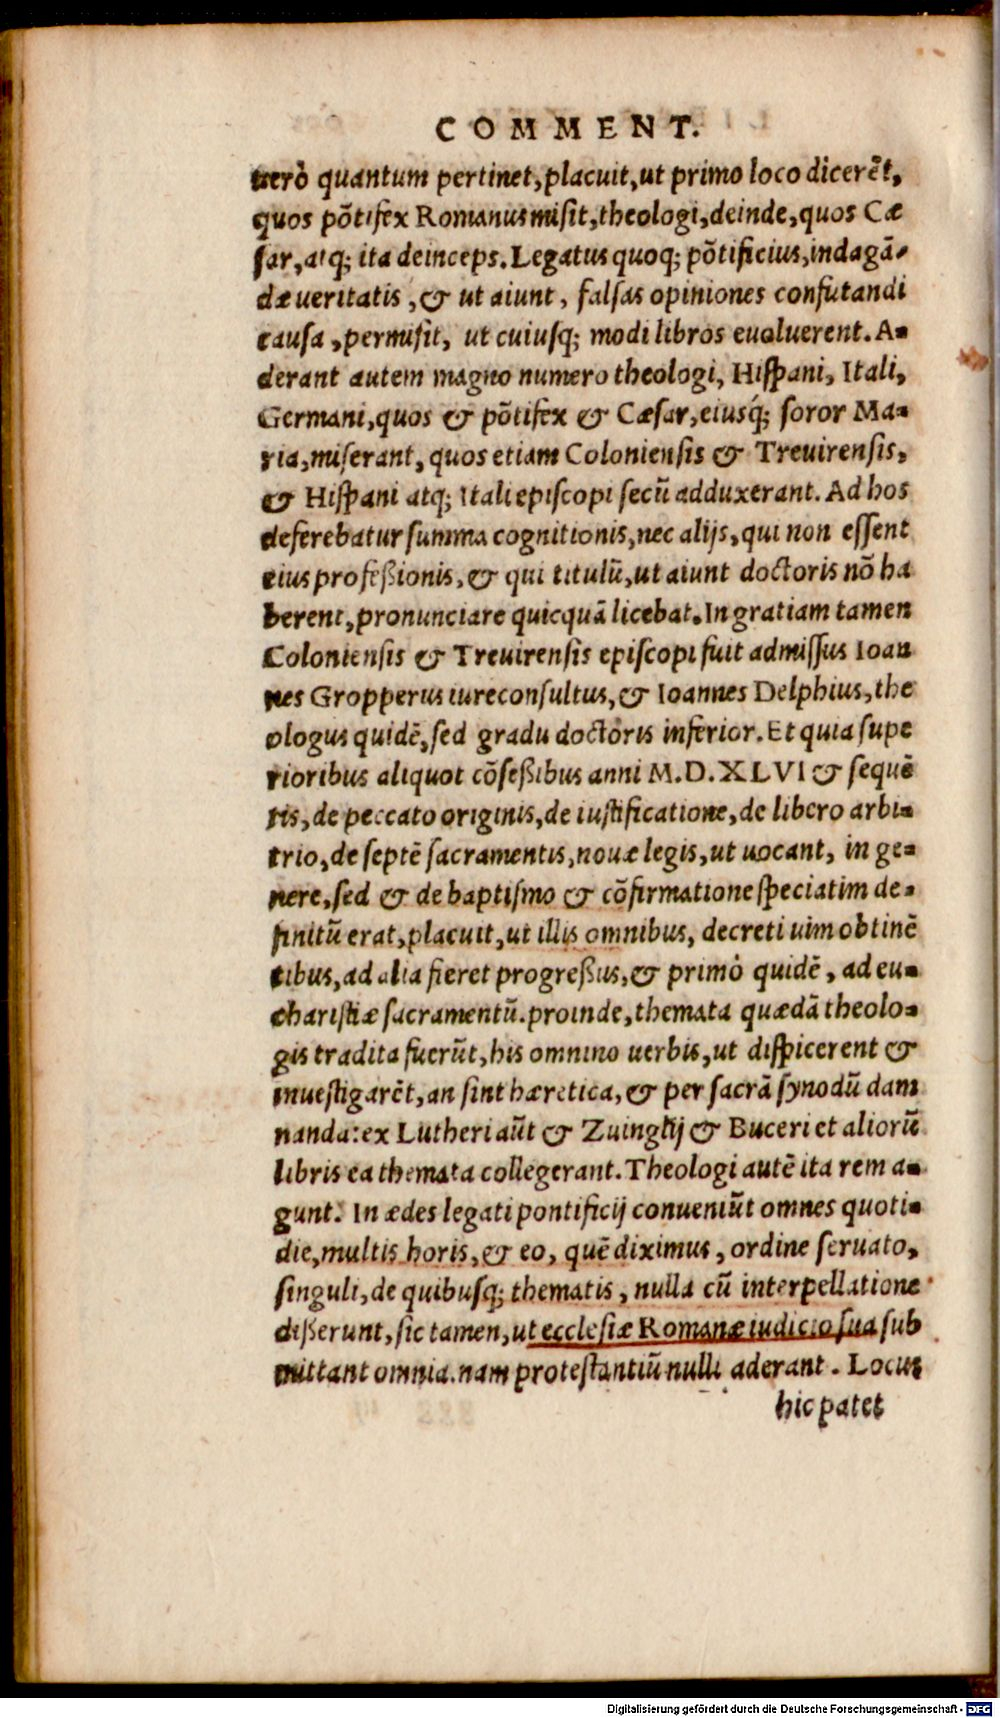 COMMENT.
uerò quantum pertinet, placuit, ut primo loco dicerēt,
quos põtifex Romanus misit, theologi, deinde, quos Cæ
sar, atq; ita deinceps. Legatus quoq; põtificius, indagā-
dæ ueritatis, & ut aiunt, falsas opiniones confutandi
causa, permisit, ut cuiusq; modi libros euoluerent. A-
derant autem magno numero theologi, Hispani, Itali,
Germani, quos & põtifex & Cæsar, eiusq́; soror Ma-
ria, miserant, quos etiam Coloniensis & Treuirensis,
& Hispani atq; Itali episcopi secũ adduxerant. Ad hos
deferebatur summa cognitionis, nec alijs, qui non essent
eius profeßionis, & qui titulũ, ut aiunt doctoris nõ ha
berent, pronunciare quicquā licebat. In gratiam tamen
Coloniensis & Treuirensis episcopi fuit admissus Ioan
nes Gropperus iureconsultus, & Ioannes Delphius, the
ologus quidē, sed gradu doctoris inferior. Et quia supe
rioribus aliquot cõseßibus anni M.D.XLVI & sequē
tis, de peccato originis, de iustificatione, de libero arbi-
trio, de septē sacramentis, nouæ legis, ut uocant, in ge-
nere, sed & de baptismo & cõfirmatione speciatim de-
finitũ erat, placuit, ut illis omnibus, decreti uim obtinē
tibus, ad alia fieret progreßus, & primò quidē, ad eu-
charistiæ sacramentũ. proinde, themata quædā theolo-
gis tradita fuerũt, his omnino uerbis, ut dispicerent &
inuestigarēt, an sint hæretica, & per sacrā synodũ dam
nanda: ex Lutheri aũt & Zuinglij & Buceri et aliorũ
libris ea themata collegerant. Theologi autē ita rem a-
gunt. In ædes legati pontificij conueniũt omnes quoti-
die, multis horis, & eo, quē diximus, ordine seruato,
singuli, de quibusq; thematis, nulla cũ interpellatione
dißerunt, sic tamen, ut ecclesiæ Romanæ iudicio sua sub
mittant omnia. nam protestantiũ nulli aderant. Locus
hic patet
Digitalisierung gefördert durch die Deutsche Forschungsgemeinschaft - DFG